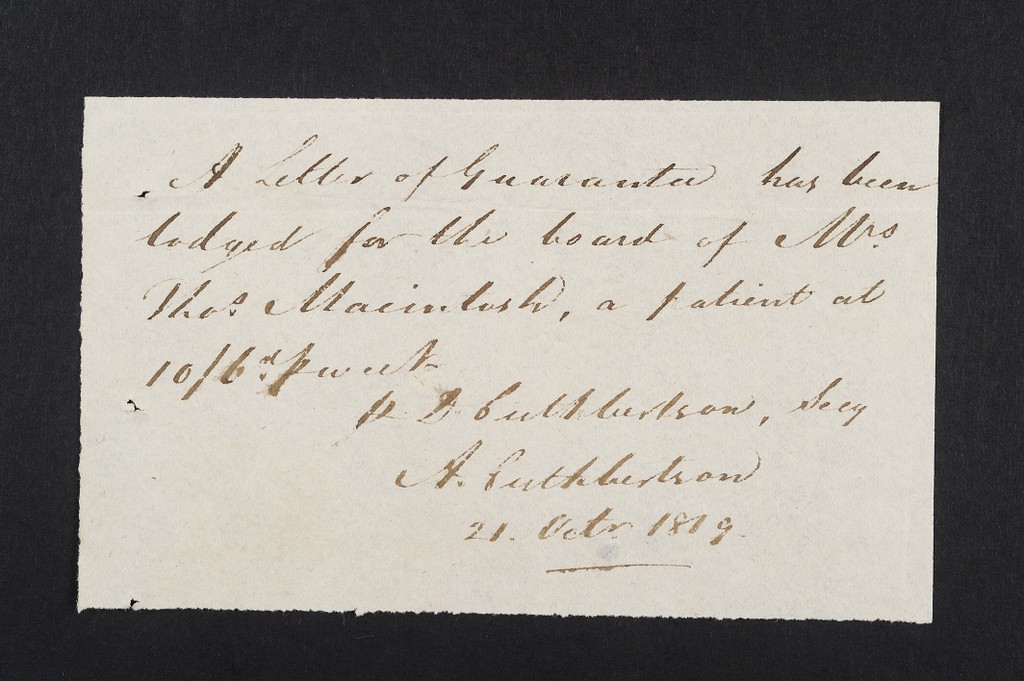 A Letter of Guarantee has been
lodged for the board of Mrs
Thos Macintosh, a patient at
10/6d p week
p D. Cuthbertson, Secy
A. Cuthbertson
21. Octr 1819.